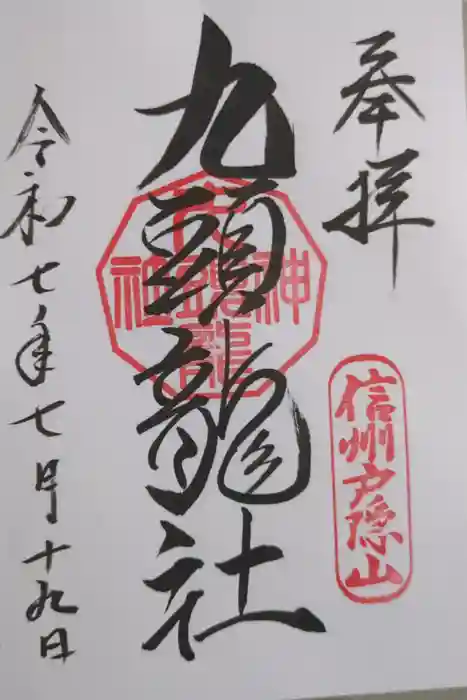 奉拝
信州戸隠山
九頭龍社
令和七年七月十九日